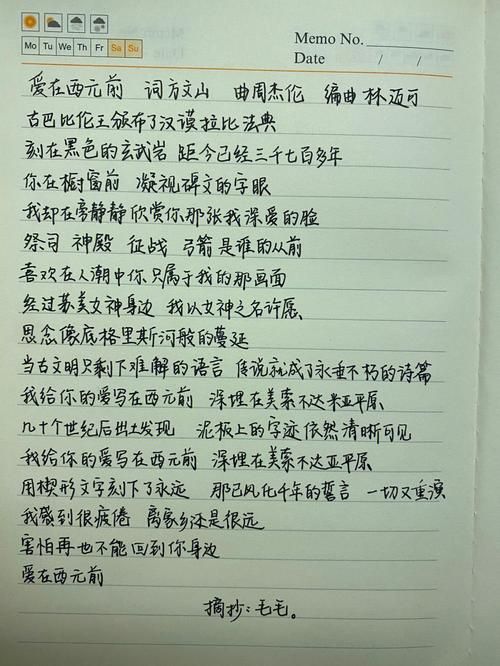 Mo Tu We Th Fr Sa Su
Memo No.
Date / /
爱在西元前 词方文山 曲周杰伦 编曲林迈可
古巴比伦王颁布了汉谟拉比法典
刻在黑色的玄武岩 距今已经三千七百多年
你在橱窗前 凝视碑文的字眼
我却在旁静静欣赏你那张我深爱的脸
祭司 神殿 征战 弓箭是谁的从前
喜欢在人潮中你只属于我的那画面
经过苏美女神身边 我以女神之名许愿
思念像底格里斯河般的蔓延
当古文明只剩下难解的语言 传说就成了永垂不朽的诗篇
我给你的爱写在西元前 深埋在美索不达米亚平原
几十个世纪后出土发现 泥板上的字迹依然清晰可见
我给你的爱写在西元前 深埋在美索不达亚平原
用楔形文字刻下了永远 那已风化千年的誓言 一切又重演
我感到很疲倦 离家乡还是很远
害怕再也不能回到你身边
爱在西元前
摘抄:毛毛。